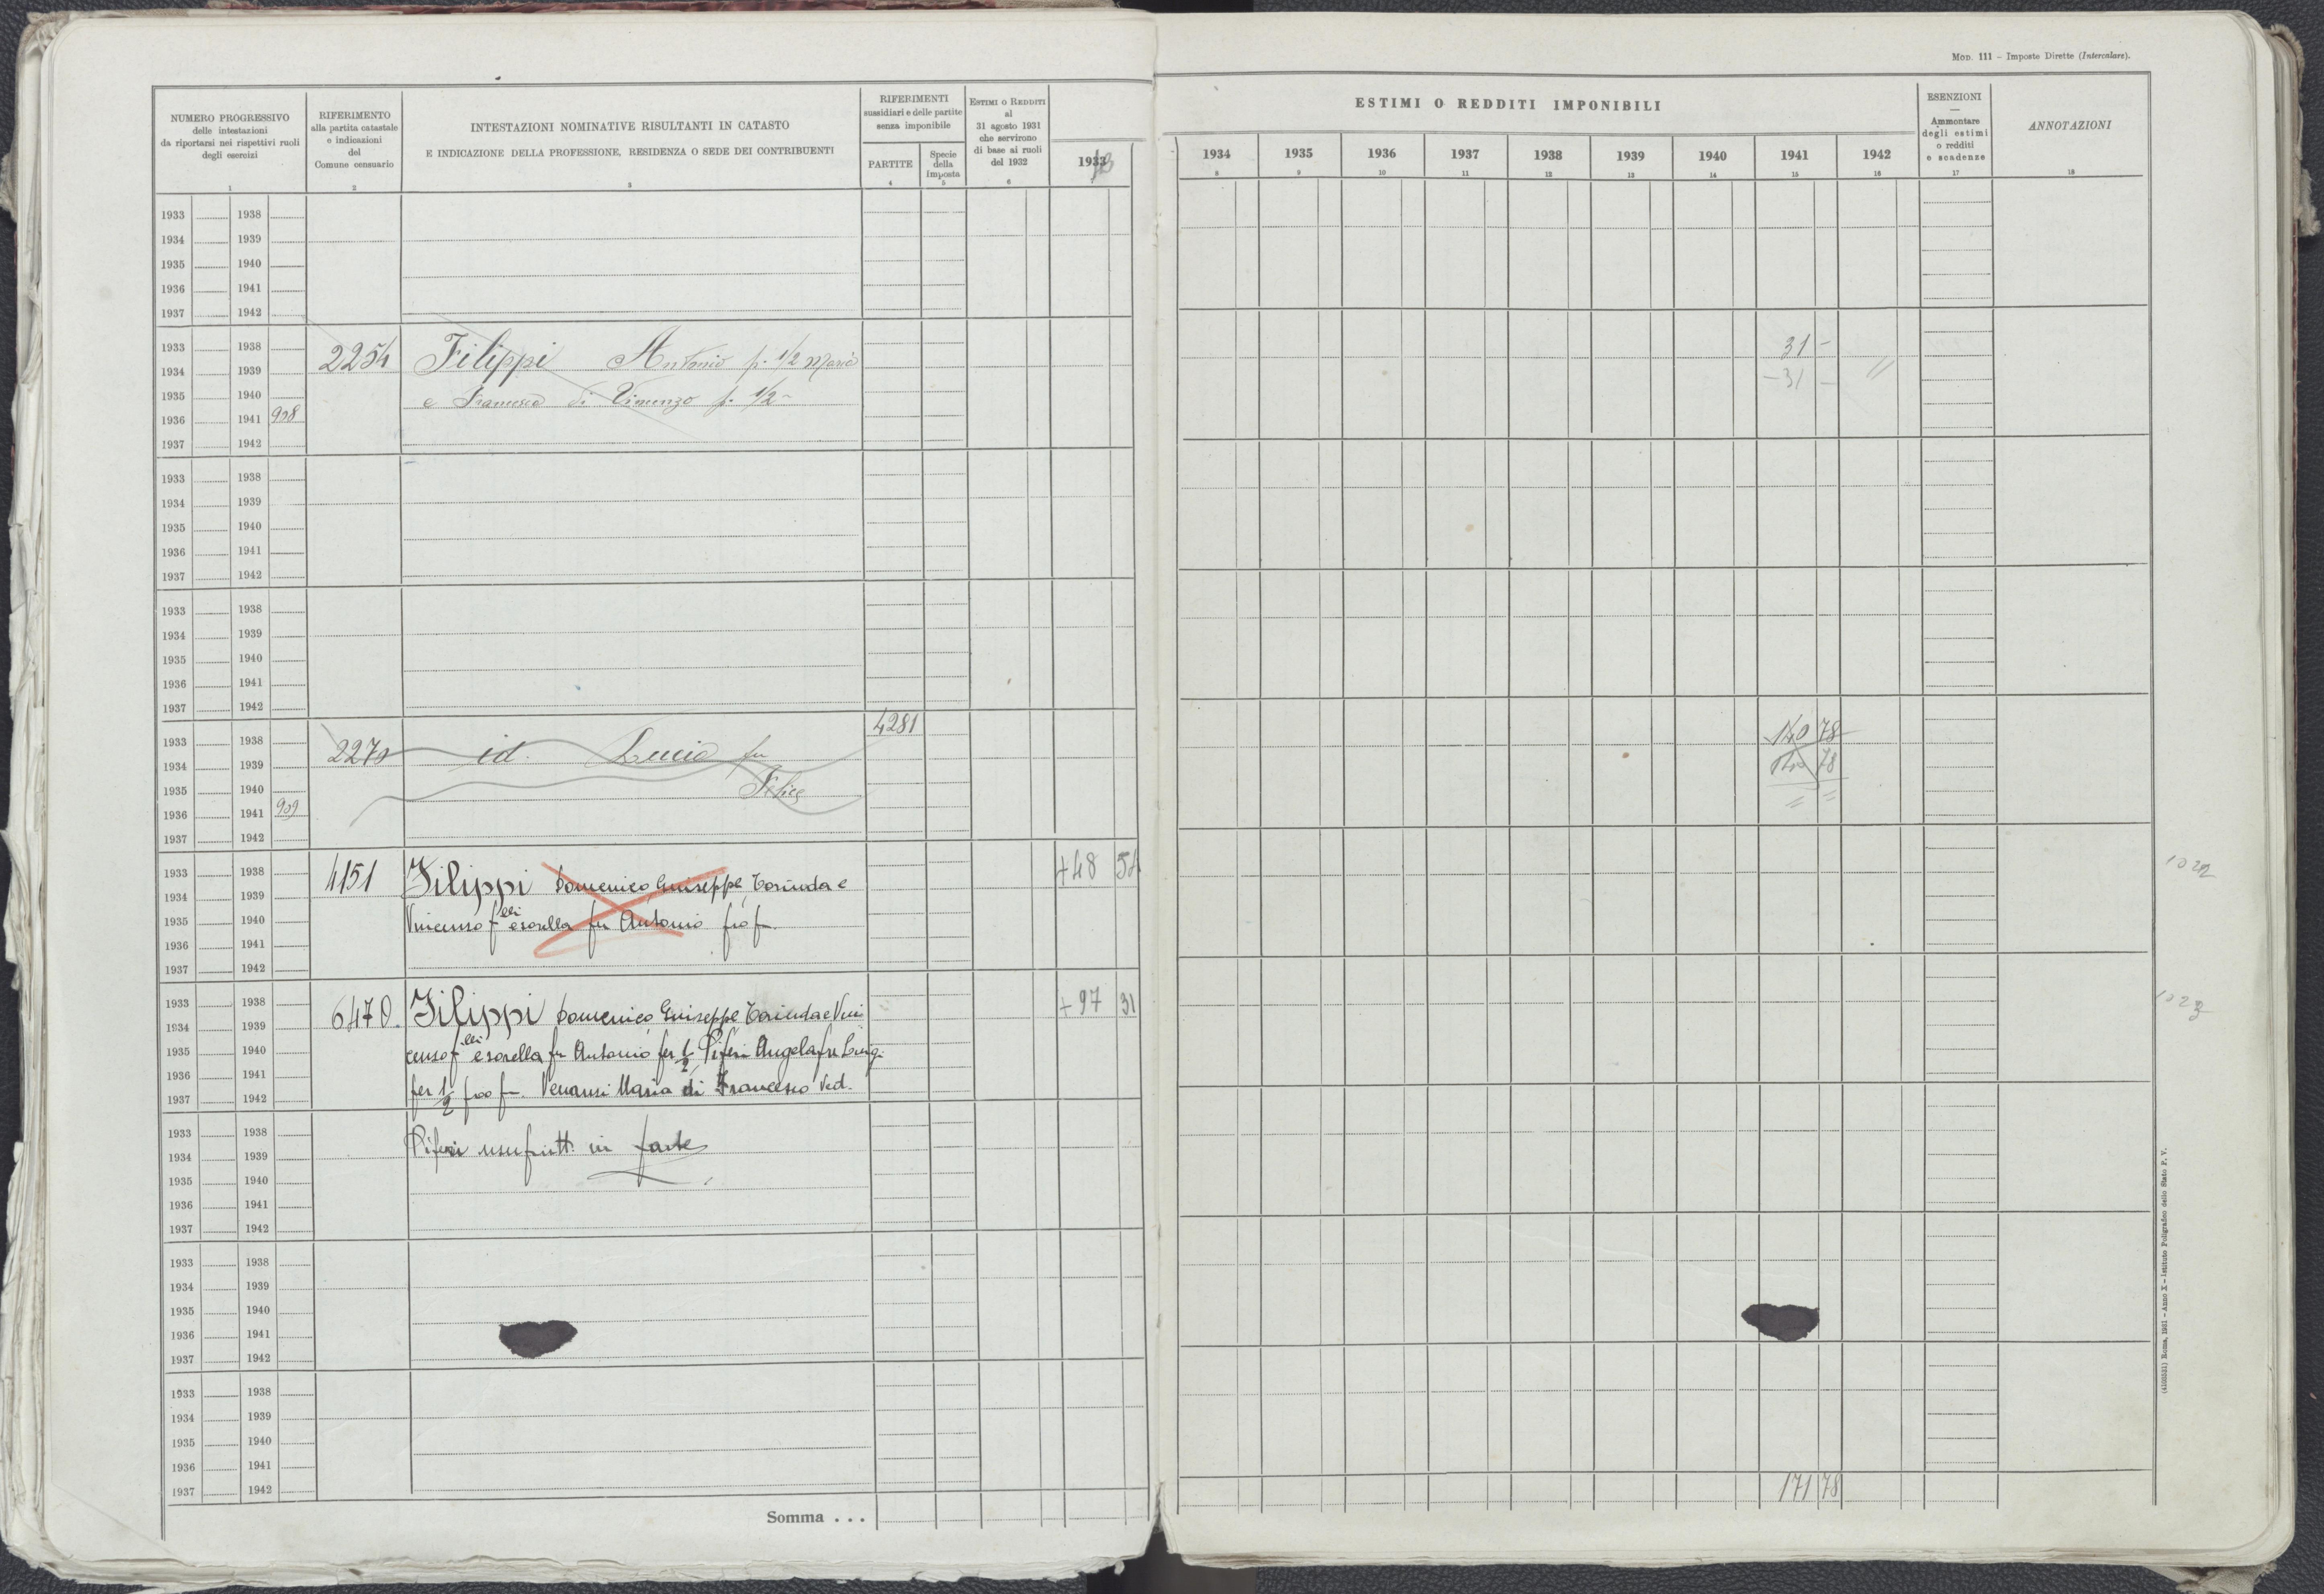 MOD. 111 – Imposte Dirette (Intercalare).
NUMERO PROGRESSIVO
delle intestazioni
da riportarsi nei rispettivi ruoli
degli esercizi
1
RIFERIMENTO
alla partita catastale
e indicazioni
del
Comune censuario
2
INTESTAZIONI NOMINATIVE RISULTANTI IN CATASTO
E INDICAZIONE DELLA PROFESSIONE, RESIDENZA O SEDE DEI CONTRIBUENTI
3
RIFERIMENTI
sussidiari e delle partite
senza imponibile
PARTITE
4
Specie
della
Imposta
5
ESTIMI O REDDITI
al
31 agosto 1931
che servirono
di base ai ruoli
del 1932
6
1933
ESTIMI O REDDITI IMPONIBILI
1934 1935 1936 1937 1938 1939 1940 1941 1942
8 9 10 11 12 13 14 15 16
ESENZIONI
—
Ammontare
degli estimi
o redditi
e scadenze
17
ANNOTAZIONI
18
1933 1938
1934 1939
1935 1940
1936 1941
1937 1942
1933 1938 31 –
1934 1939 2254 Filippi Antonio p. 1/2 Maria – 31 – //
1935 1940 e Francesco di Vincenzo p. 1/2 –
1936 1941 908
1937 1942
1933 1938
1934 1939
1935 1940
1936 1941
1937 1942
1933 1938
1934 1939
1935 1940
1936 1941
1937 1942
4281
1933 1938 2270 id. Lucia fu 140 78
1934 1939 78
1935 1940 Felice = =
1936 1941 909
1937 1942
1933 1938 4151 Filippi Domenico Giuseppe, Torinda e +48 54 1022
1934 1939
1935 1940 Vincenzo f.lli e sorella fu Antonio
1936 1941
1937 1942
1933 1938 6470. Filippi Domenico Giuseppe Torinda e Vin +97 31 1023
1934 1939
1935 1940 cenzo f.lli e sorella fu Antonio per 1/2 Piferi Angela fu Luigi
1936 1941
1937 1942 per 1/2 Venanzi Maria di Francesco Ved.
1933 1938
1934 1939 Piferi usufrutt. in parte
1935 1940
1936 1941
1937 1942
1933 1938
1934 1939
1935 1940
1936 1941
1937 1942
1933 1938
1934 1939
1935 1940
1936 1941
1937 1942 171 78
Somma . . .
(4103531) Roma, 1931 – Anno X – Istituto Poligrafico dello Stato P. V.